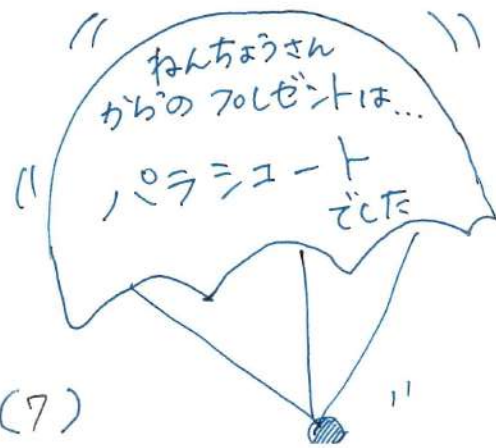 ねんちょうさん
からの プレゼントは...
パラシュート
でした
(7)